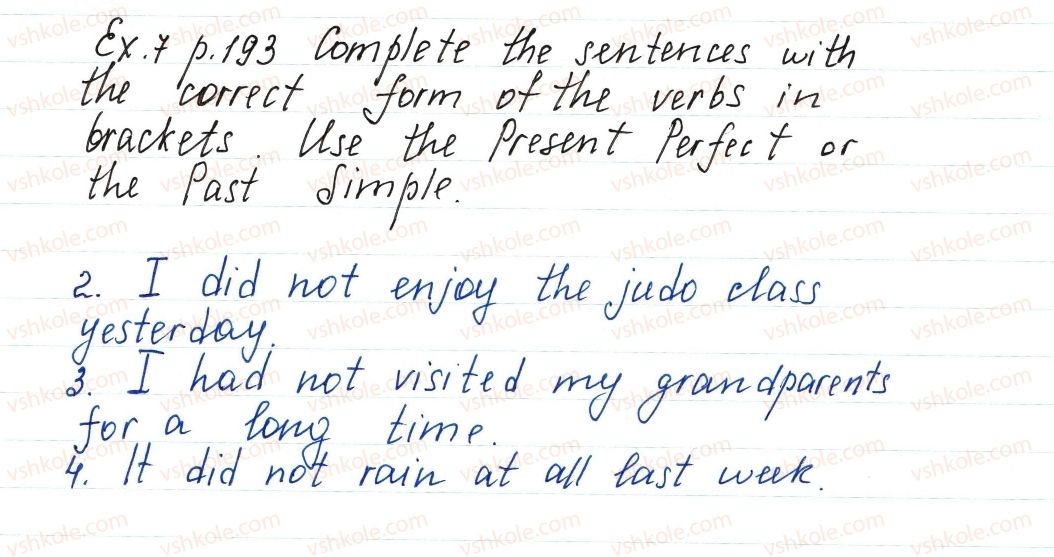 Ex. 7 p. 193 Complete the sentences with
the correct form of the verbs in
brackets. Use the Present Perfect or
the Past Simple.
2. I did not enjoy the judo class
yesterday.
3. I had not visited my grandparents
for a long time.
4. It did not rain at all last week.